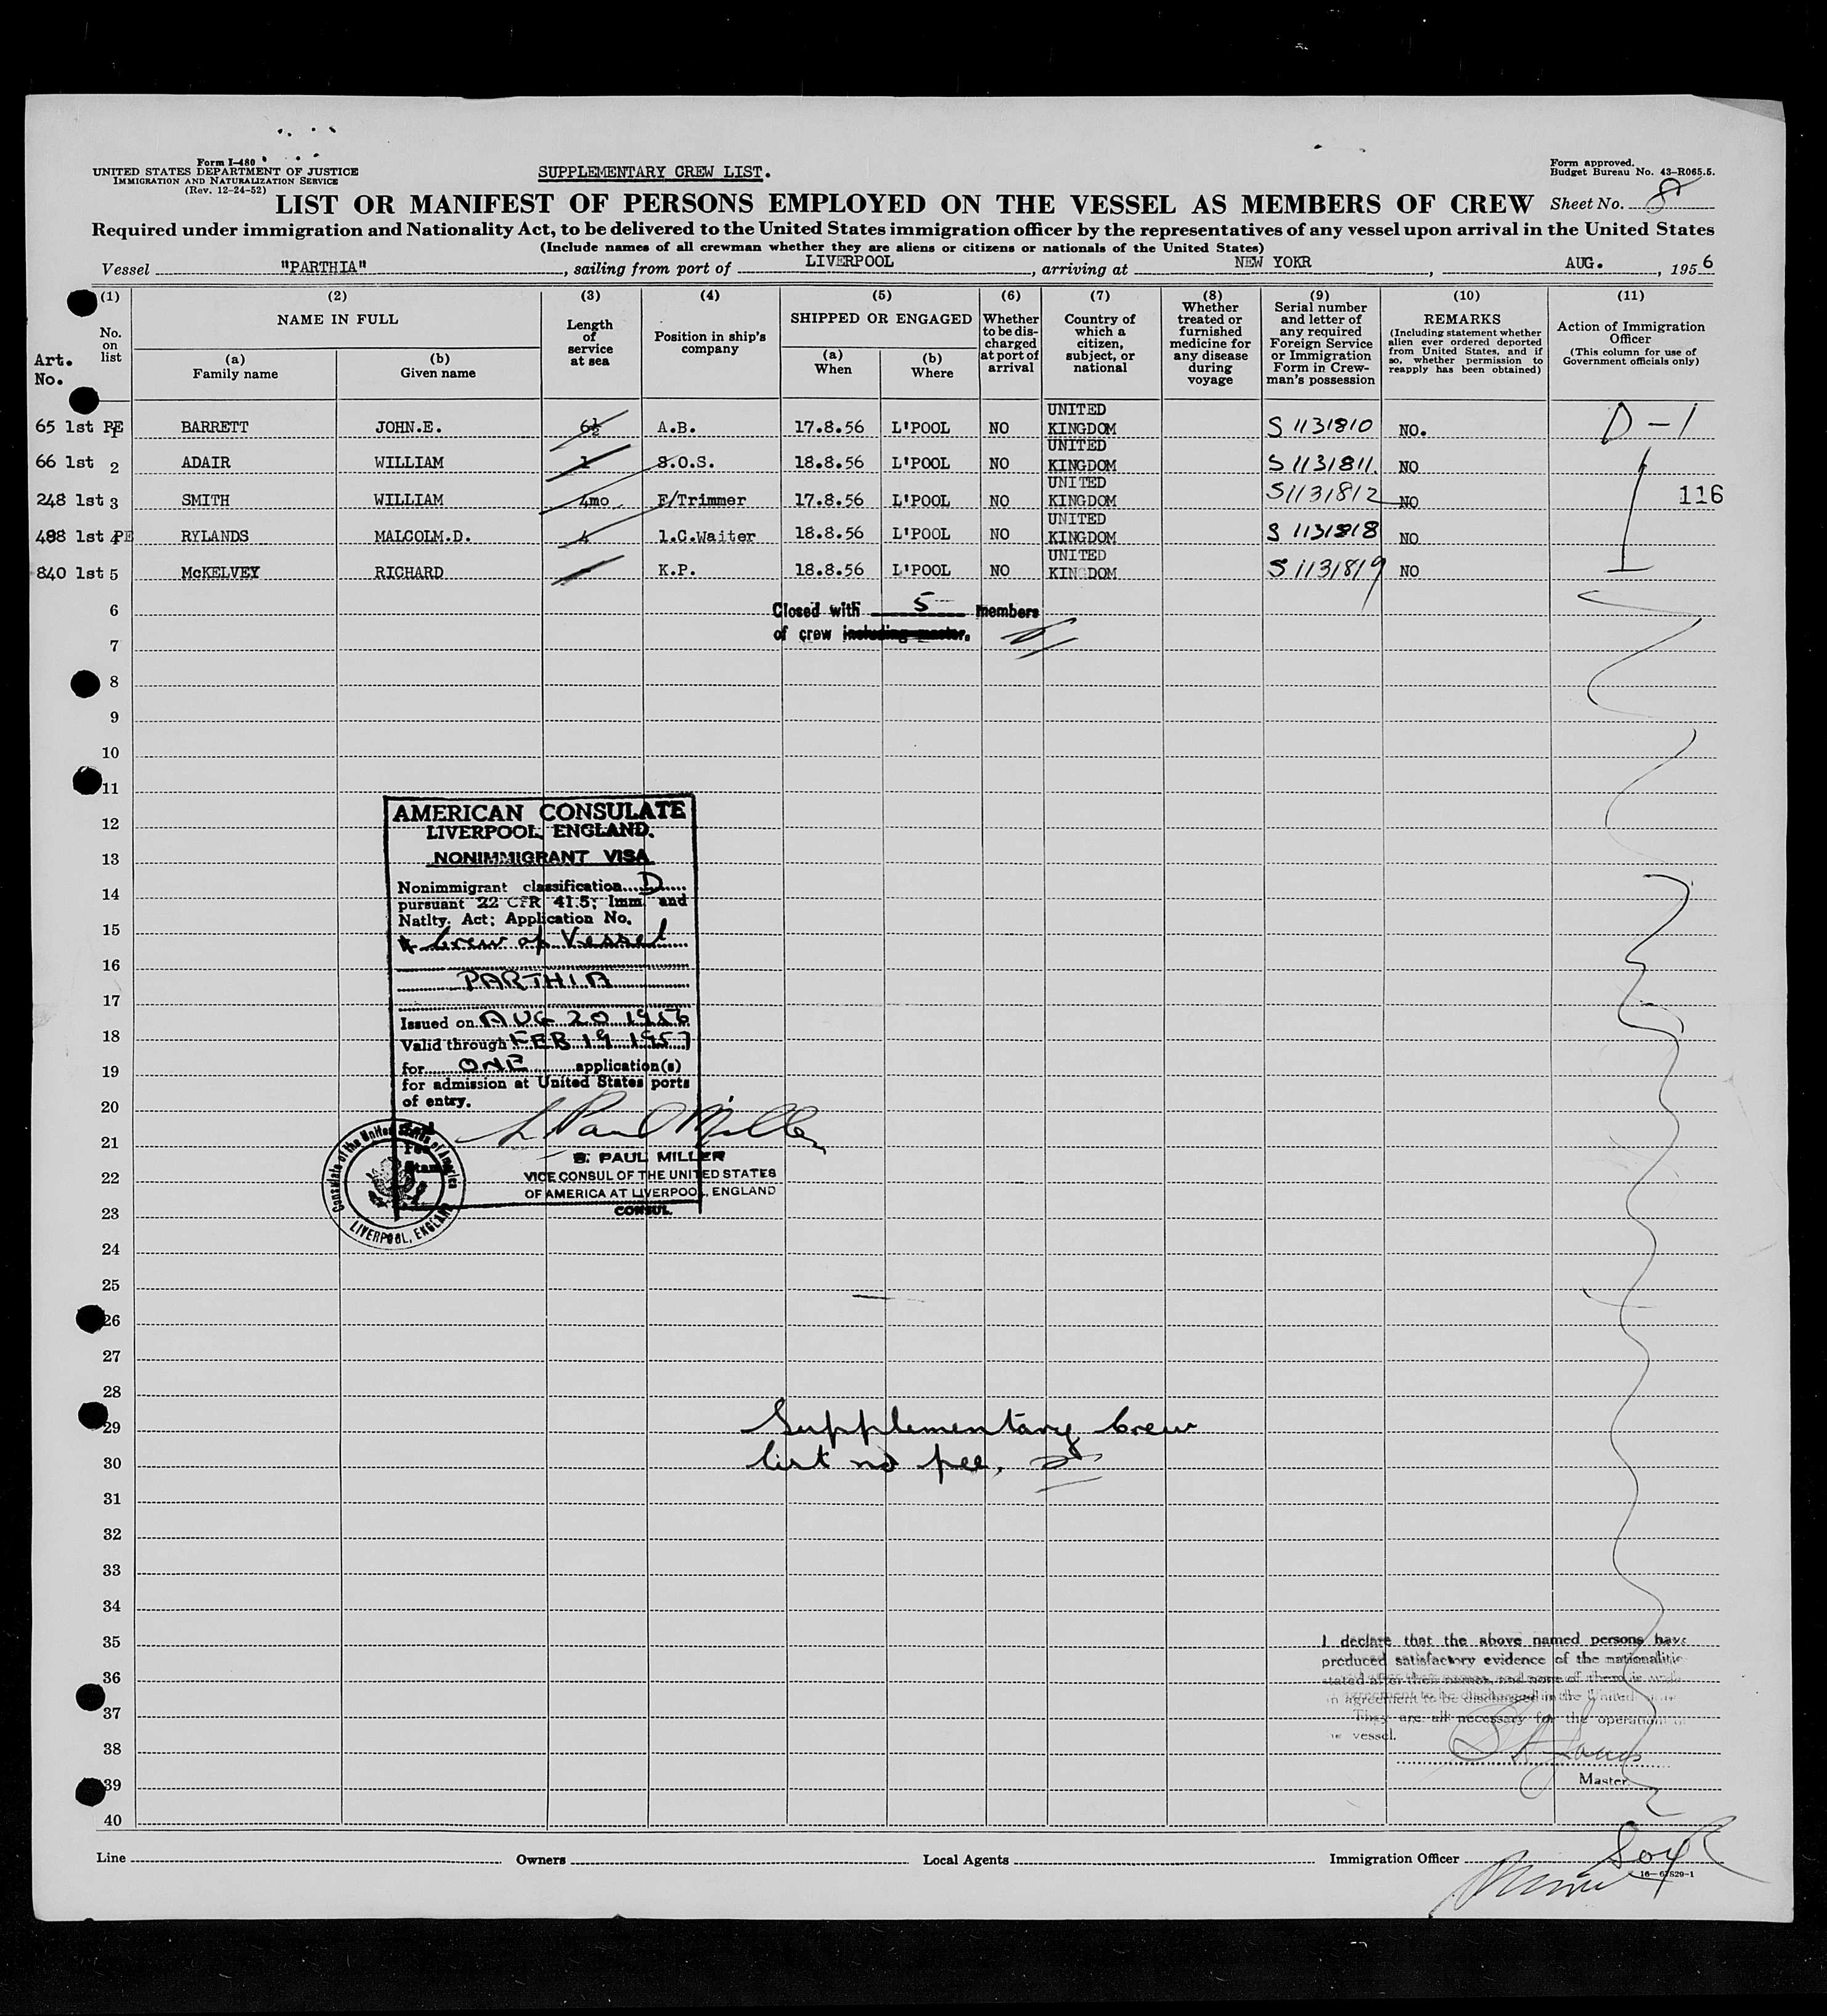 Form I-480
UNITED STATES DEPARTMENT OF JUSTICE
IMMIGRATION AND NATURALIZATION SERVICE
(Rev. 12-24-52)
SUPPLEMENTARY CREW LIST.
Form approved.
Budget Bureau No. 43-R065.5.
LIST OR MANIFEST OF PERSONS EMPLOYED ON THE VESSEL AS MEMBERS OF CREW Sheet No. 8
Required under immigration and Nationality Act, to be delivered to the United States immigration officer by the representatives of any vessel upon arrival in the United States
(Include names of all crewman whether they are aliens or citizens or nationals of the United States)
Vessel "PARTHIA", sailing from port of LIVERPOOL, arriving at NEW YOKR, AUG., 1956
(1) (2) (3) (4) (5) (6) (7) (8) (9) (10) (11)
Art. No.
No. on list
NAME IN FULL
(a) Family name
(b) Given name
Length of service at sea
Position in ship's company
SHIPPED OR ENGAGED
(a) When
(b) Where
Whether to be discharged at port of arrival
Country of which a citizen, subject, or national
Whether treated or furnished medicine for any disease during voyage
Serial number and letter of any required Foreign Service or Immigration Form in Crewman's possession
REMARKS
(Including statement whether alien ever ordered deported from United States, and if so, whether permission to reapply has been obtained)
Action of Immigration Officer
(This column for use of Government officials only)
65 1st PE 1 BARRETT JOHN.E. 6½ A.B. 17.8.56 L'POOL NO UNITED KINGDOM S 1131810 NO. D-1
66 1st 2 ADAIR WILLIAM 1 S.O.S. 18.8.56 L'POOL NO UNITED KINGDOM S 1131811. NO
248 1st 3 SMITH WILLIAM 4mo F/Trimmer 17.8.56 L'POOL NO UNITED KINGDOM S1131812 NO 116
488 1st 4 PE RYLANDS MALCOLM.D. 4 1.C.Waiter 18.8.56 L'POOL NO UNITED KINGDOM S 1131818 NO
840 1st 5 McKELVEY RICHARD - K.P. 18.8.56 L'POOL NO UNITED KINGDOM S 1131819 NO
6
Closed with 5 members
of crew including master.
7
8
9
10
11
12
13
14
15
16
17
18
19
20
21
22
23
24
25
26
27
28
29
30
31
32
33
34
35
36
37
38
39
40
AMERICAN CONSULATE
LIVERPOOL, ENGLAND.
NONIMMIGRANT VISA
Nonimmigrant classification D
pursuant 22 CFR 41.5; Imm and
Natlty. Act; Application No.
Crew of Vessel
PARTHIA
Issued on AUG 20 1956
Valid through FEB 19 1957
for ONE application(s)
for admission at United States ports
of entry.
S. Paul Miller
S. PAUL MILLER
VICE CONSUL OF THE UNITED STATES
OF AMERICA AT LIVERPOOL, ENGLAND
CONSUL.
Consulate of the United States of America
LIVERPOOL, ENGLAND
Supplementary Crew
list no fee.
I declare that the above named persons have
produced satisfactory evidence of the nationalitie
stated after their names, and none of them is
in agreement to be discharged in the United
They are all necessary for the operation of
vessel.
Master.
Line Owners Local Agents Immigration Officer
16-67829-1